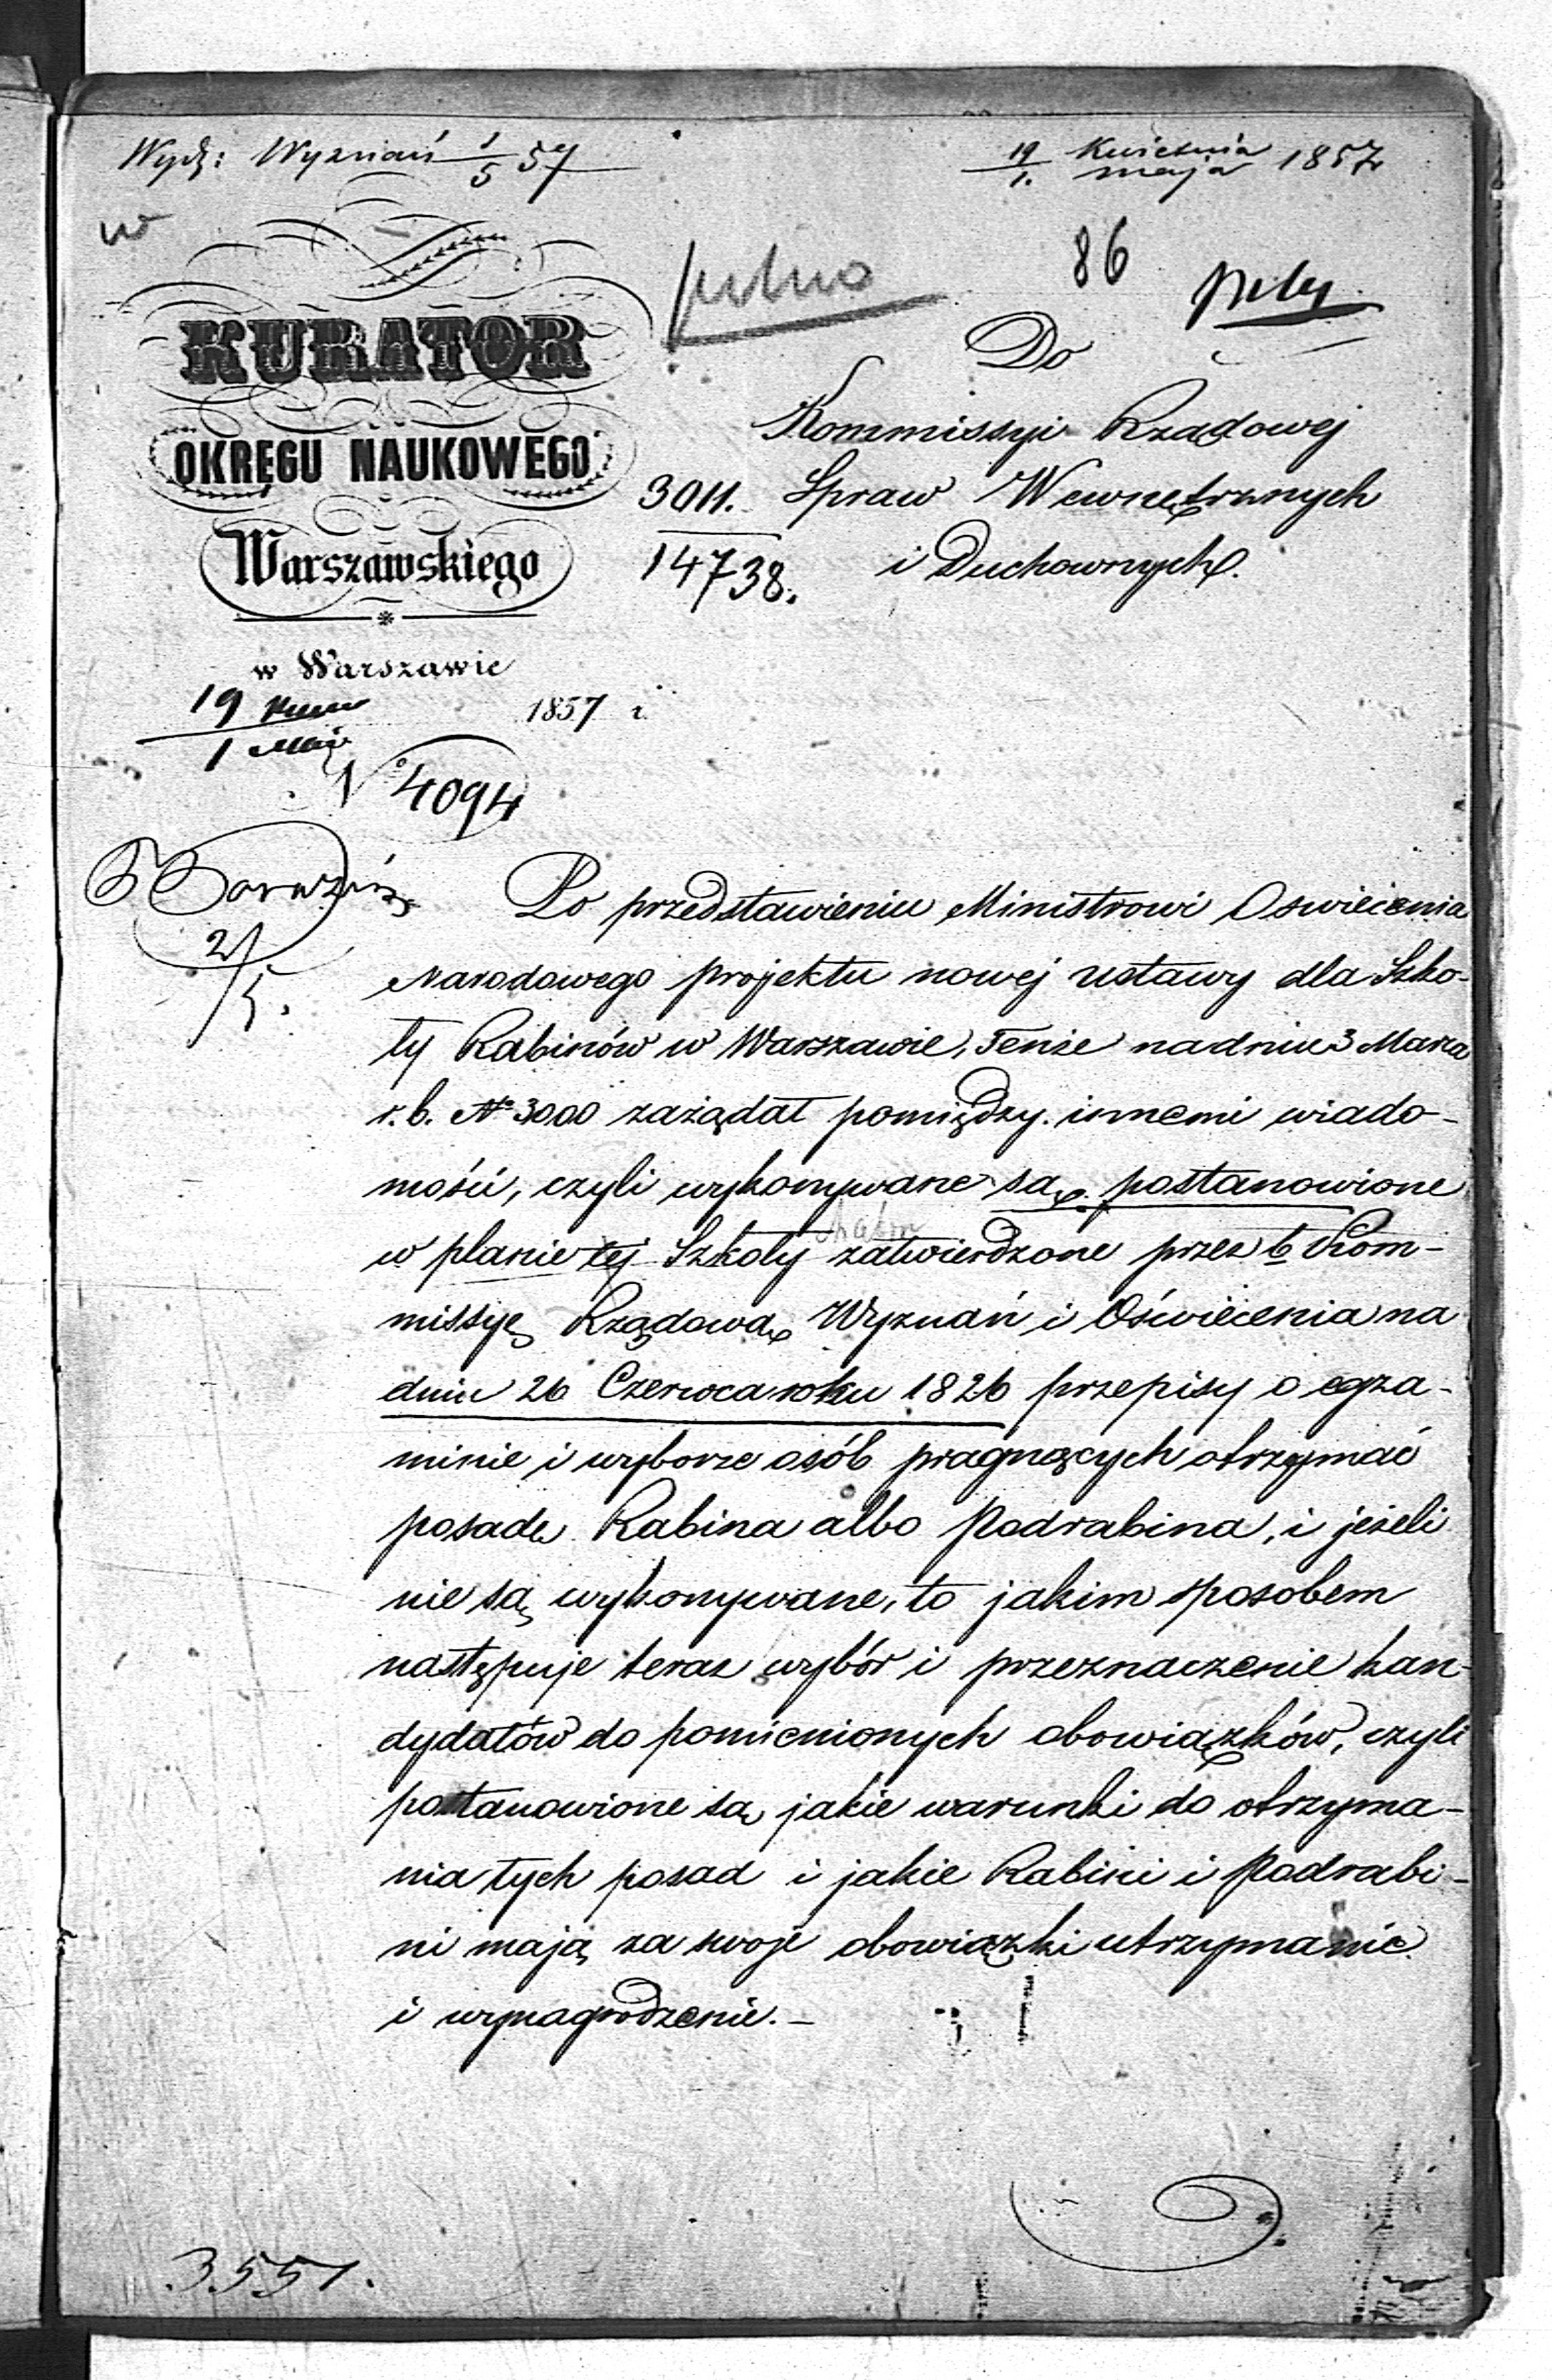 Wydz: Wyznań 1/5 57
19/1. Kwietnia/maja 1857
86
pilno
KURATOR
OKRĘGU NAUKOWEGO
Warszawskiego
w Warszawie
19 Kwie
1 Maja
1857 r.
No 4094
Do
Kommissyi Rządowej
3011. Spraw Wewnętrznych
14738. i Duchownych.
2/5.
Po przedstawieniu Ministrowi Oswiecenia
Narodowego projektu nowej ustawy dla Szko-
ły Rabinów w Warszawie, Tenże na dniu 3 Marca
r. b. No 3000 zażądał pomiędzy innemi wiado-
mości, czyli wykonywane są postanowione
w planie tej Szkoły zatwierdzone przez b Kom-
missyę Rządową Wyznań i Oświecenia na
dniu 26 Czerwca roku 1826 przepisy o egza-
minie i wyborze osób pragnących otrzymać
posadę Rabina albo Podrabina, i jeżeli
nie są wykonywane, to jakim sposobem
następuje teraz wybór i przeznaczenie kan-
dydatów do pomienionych obowiązków, czyli
postanowione są jakie warunki do otrzyma-
nia tych posad i jakie Rabini i Podrabi-
ni mają za swoje obowiązki utrzymanie
i wynagrodzenie.-
3551.